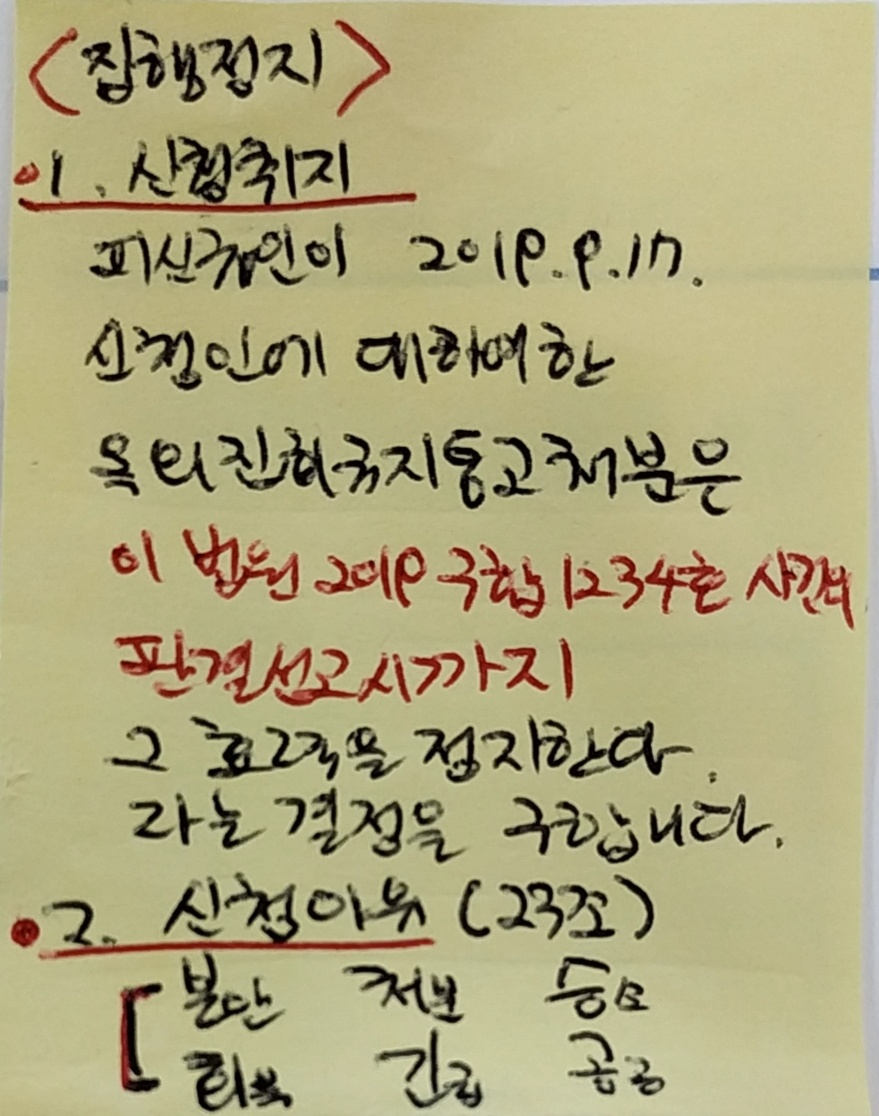 <집행정지>
1. 신청취지
피신청인이 2019.9.17.
신청인에 대하여한
옥외집회금지통고처분은
이 법원 2019구합1234호 사건의
판결선고시까지
그 효력을 정지한다.
라는 결정을 구합니다.
2. 신청이유 (23조)
본안 처분 승소
회복 긴급 공공